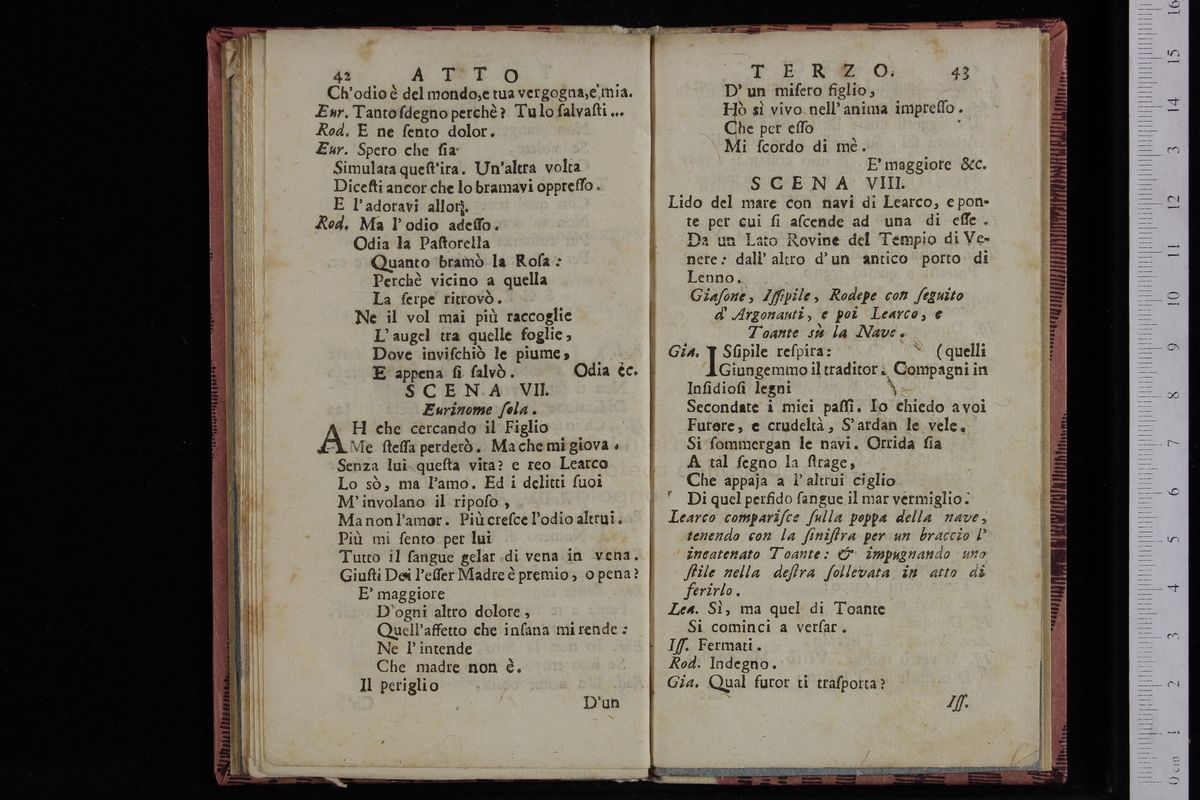 42 ATTO
Ch'odio è del mondo, e tua vergogna, e mia.
Eur. Tanto ſdegno perchè? Tu lo ſalvaſti...
Rod. E ne ſento dolor.
Eur. Spero che ſia
Simulata queſt'ira. Un'altra volta
Diceſti ancor che lo bramavi oppreſſo.
E l'adoravi allor.
Rod. Ma l'odio adeſſo.
Odia la Paſtorella
Quanto bramò la Roſa:
Perchè vicino a quella
La ſerpe ritrovò.
Ne il vol mai più raccoglie
L'augel tra quelle foglie,
Dove inviſchiò le piume,
E appena ſi ſalvò. Odia ec.
SCENA VII.
Eurinome ſola.
AH che cercando il Figlio
Me ſteſſa perderò. Ma che mi giova
Senza lui queſta vita? e reo Learco
Lo sò, ma l'amo. Ed i delitti ſuoi
M'involano il ripoſo,
Ma non l'amor. Più creſce l'odio altrui.
Più mi ſento per lui
Tutto il ſangue gelar di vena in vena.
Giuſti Dei l'eſſer Madre è premio, o pena?
E' maggiore
D'ogni altro dolore,
Quell'affetto che inſana mi rende:
Ne l'intende
Che madre non è.
Il periglio
D'un
TERZO. 43
D'un miſero figlio,
Hò sì vivo nell'anima impreſſo.
Che per eſſo
Mi ſcordo di mè.
E' maggiore &c.
SCENA VIII.
Lido del mare con navi di Learco, e pon-
te per cui ſi aſcende ad una di eſſe.
Da un Lato Rovine del Tempio di Ve-
nere: dall'altro d'un antico porto di
Lenno.
Giaſone, Iſſipile, Rodepe con ſeguito
d'Argonauti, e poi Learco, e
Toante sù la Nave.
Gia. ISſipile reſpira: (quelli
Giungemmo il traditor. Compagni in
Inſidioſi legni
Secondate i miei paſſi. Io chiedo a voi
Furore, e crudeltà, S'ardan le vele,
Si ſommergan le navi. Orrida ſia
A tal ſegno la ſtrage,
Che appaja a l'altrui ciglio
Di quel perfido ſangue il mar vermiglio.
Learco compariſce ſulla poppa della nave,
tenendo con la ſiniſtra per un braccio l'
incatenato Toante: & impugnando uno
ſtile nella deſtra ſollevata in atto di
ferirlo.
Lea. Sì, ma quel di Toante
Si cominci a verſar.
Iſſ. Fermati.
Rod. Indegno.
Gia. Qual furor ti traſporta?
Iſſ.
0 cm 1 2 3 4 5 6 7 8 9 10 11 12 13 14 15 16